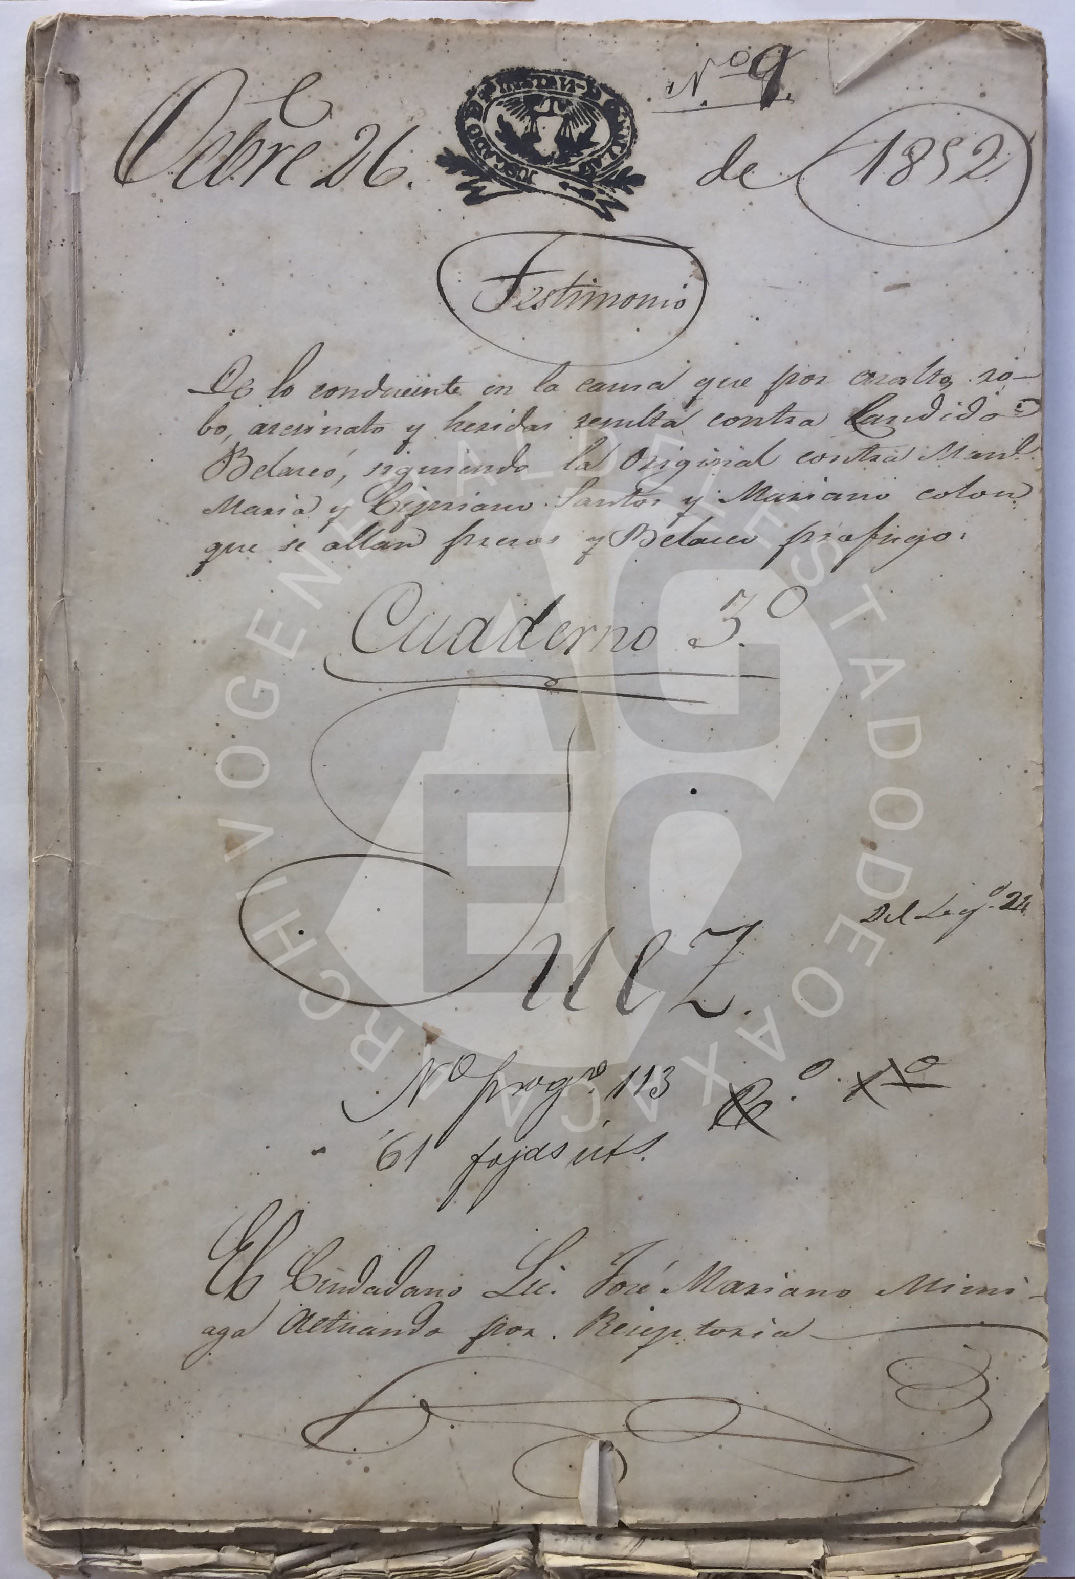 Nº 9
Ocbre 26. de 1852
Testimonio
De lo conducente en la causa que por asalto, ro-
bo, asesinato y heridas resulta contra Candido
Belasco, siguiendo la Original contra Manl.
Maria y Cipriano Santos y Mariano colon
que se allan presos y Belasco profugo.
Cuaderno 3.º
Del Legº. 24
Juez.
Nº progrº. 113
61 fojas uts.
El Ciudadano Lic. José Mariano Mimi-
aga Actuando por Receptoria
ARCHIVO GENERAL DEL ESTADO DE OAXACA
AGEO